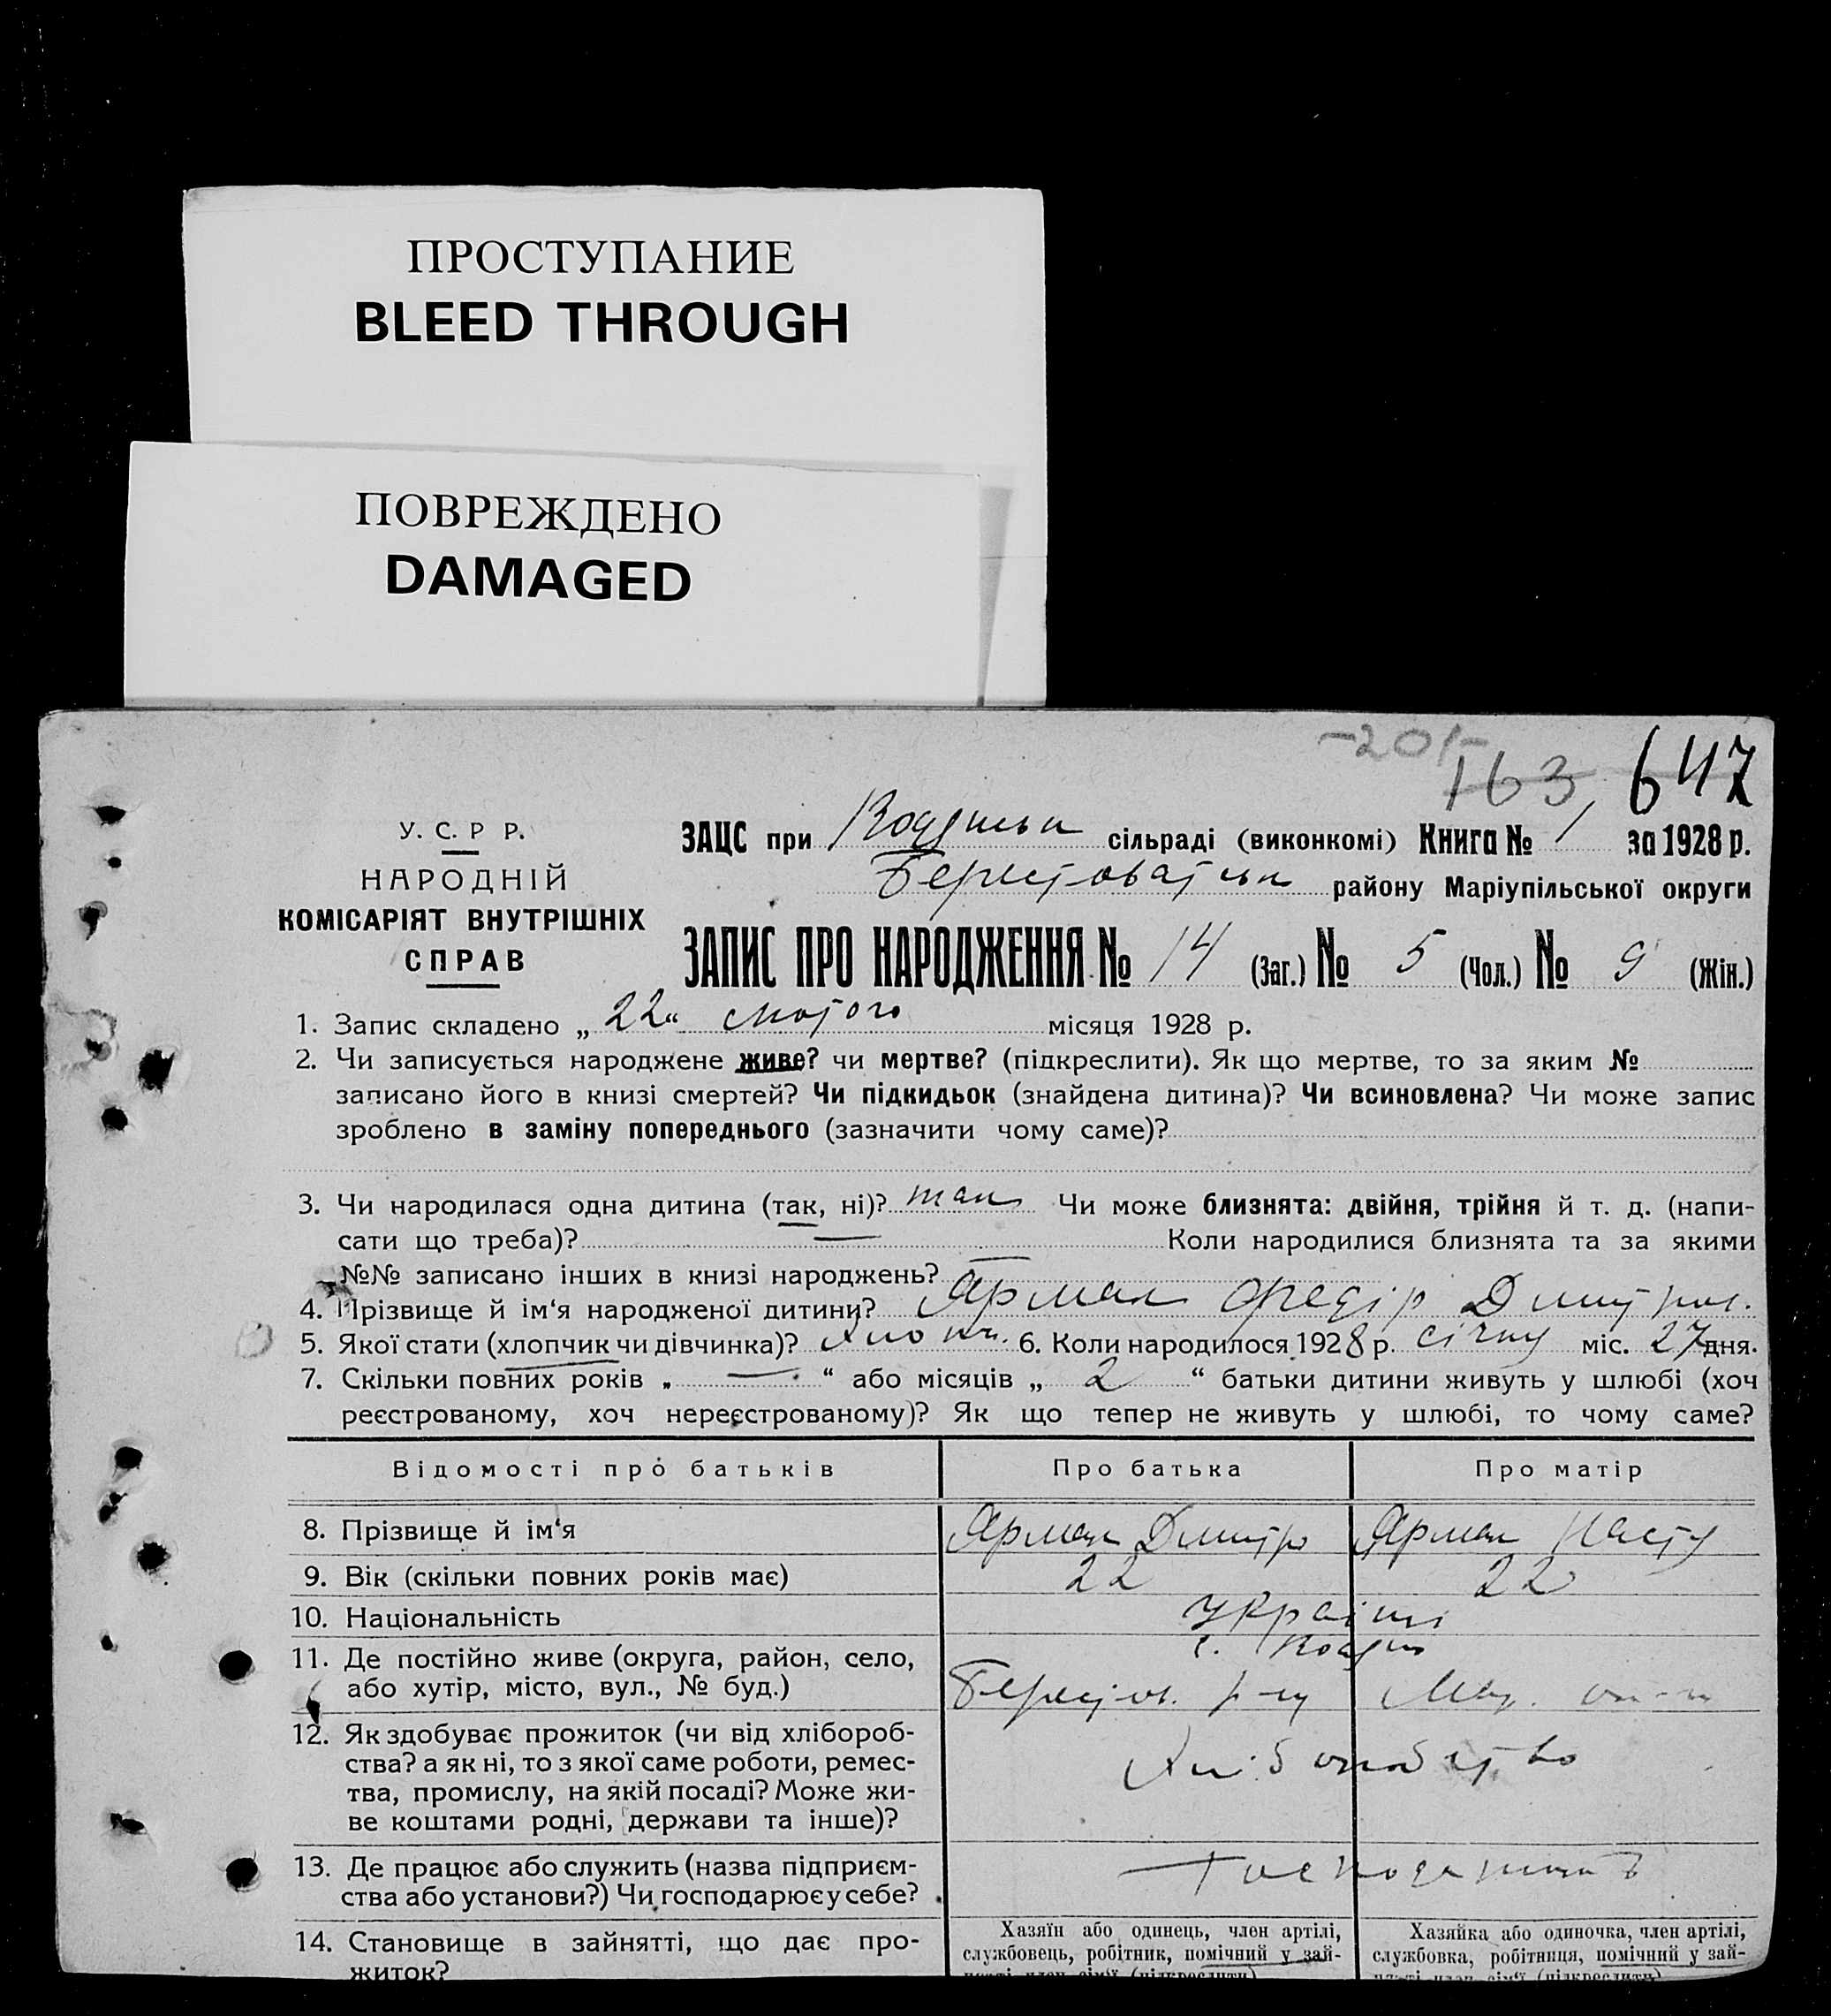 ПРОСТУПАНИЕ
BLEED THROUGH
ПОВРЕЖДЕНО
DAMAGED
-201-
163 647
У. С. Р Р.
НАРОДНІЙ
КОМІСАРІЯТ ВНУТРІШНІХ
СПРАВ
ЗАЦС при сільраді (виконкомі) Книга № 1 за 1928 р.
Берестоватськ району Маріупільської округи
ЗАПИС ПРО НАРОДЖЕННЯ № 14 (Заг.) № 5 (Чол.) № 9 (Жін.)
1. Запис складено „22“ лютого місяця 1928 р.
2. Чи записується народжене живе? чи мертве? (підкреслити). Як що мертве, то за яким №
записано його в книзі смертей? Чи підкидьок (знайдена дитина)? Чи всиновлена? Чи може запис
зроблено в заміну попереднього (зазначити чому саме)?
3. Чи народилася одна дитина (так, ні)? так Чи може близнята: двійня, трійня й т. д. (напи-
сати що треба)? — Коли народилися близнята та за якими
№№ записано інших в книзі народжень? —
4. Прізвище й ім‘я народженої дитини? Ярмак Федір Дмитров.
5. Якої стати (хлопчик чи дівчинка)? хлопч. 6. Коли народилося 1928 р. січну міс. 27 дня.
7. Скільки повних років „ — “ або місяців „ 2 “ батьки дитини живуть у шлюбі (хоч
реєстрованому, хоч нереєстрованому)? Як що тепер не живуть у шлюбі, то чому саме?
Відомості про батьків Про батька Про матір
8. Прізвище й ім‘я Ярмак Дмитро Ярмак Насту
9. Вік (скільки повних років має) 22 22
10. Національність Україні
11. Де постійно живе (округа, район, село, с.
або хутір, місто, вул., № буд.) Берестов. р-ну Мар. ок-ги
12. Як здобуває прожиток (чи від хлібороб-
ства? а як ні, то з якої саме роботи, ремес-
тва, промислу, на якій посаді? Може жи-
ве коштами родні, держави та інше)?
Хліборобство
13. Де працює або служить (назва підприєм-
ства або установи?) Чи господарює у себе?
14. Становище в зайнятті, що дає про-
житок?
Хазяїн або одинець, член артілі,
службовець, робітник, помічний у зай-
нятті член сім‘ї (підкреслити)
Хазяйка або одиночка, член артілі,
службовка, робітниця, помічний у зай-
нятті член сім‘ї (підкреслити)